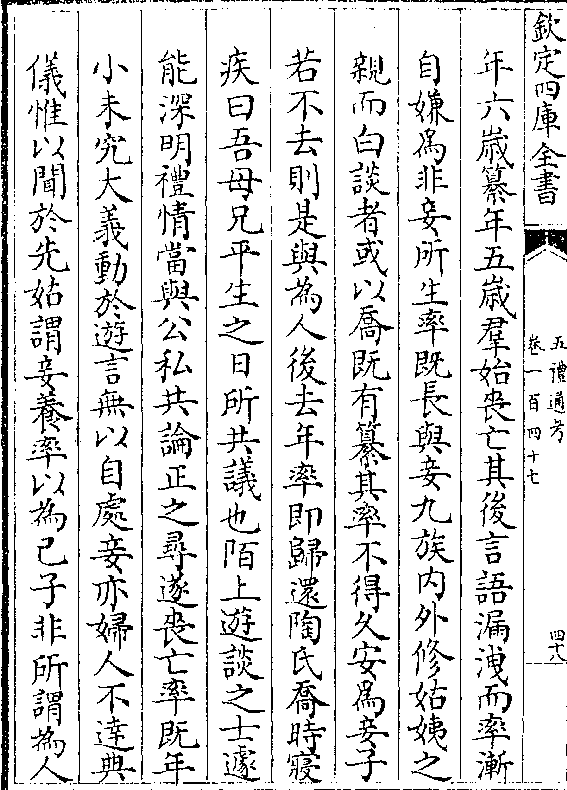 欽定四庫全書
五禮通考
卷一百四十七
四十八
年六歳纂年五歳羣始喪亡其後言語漏洩而率漸
自嫌爲非妾所生率既長與妾九族内外修姑姨之
親而白談者或以喬既有纂其率不得久安爲妾子
若不去則是與為人後去年率即歸還陶氏喬時寢
疾曰吾母兄平生之日所共議也陌上遊談之士遽
能深明禮情當與公私共論正之尋遂喪亡率既年
小未究大義動於遊言無以自處妾亦婦人不達典
儀惟以聞於先姑謂妾養率以為己子非所謂為人